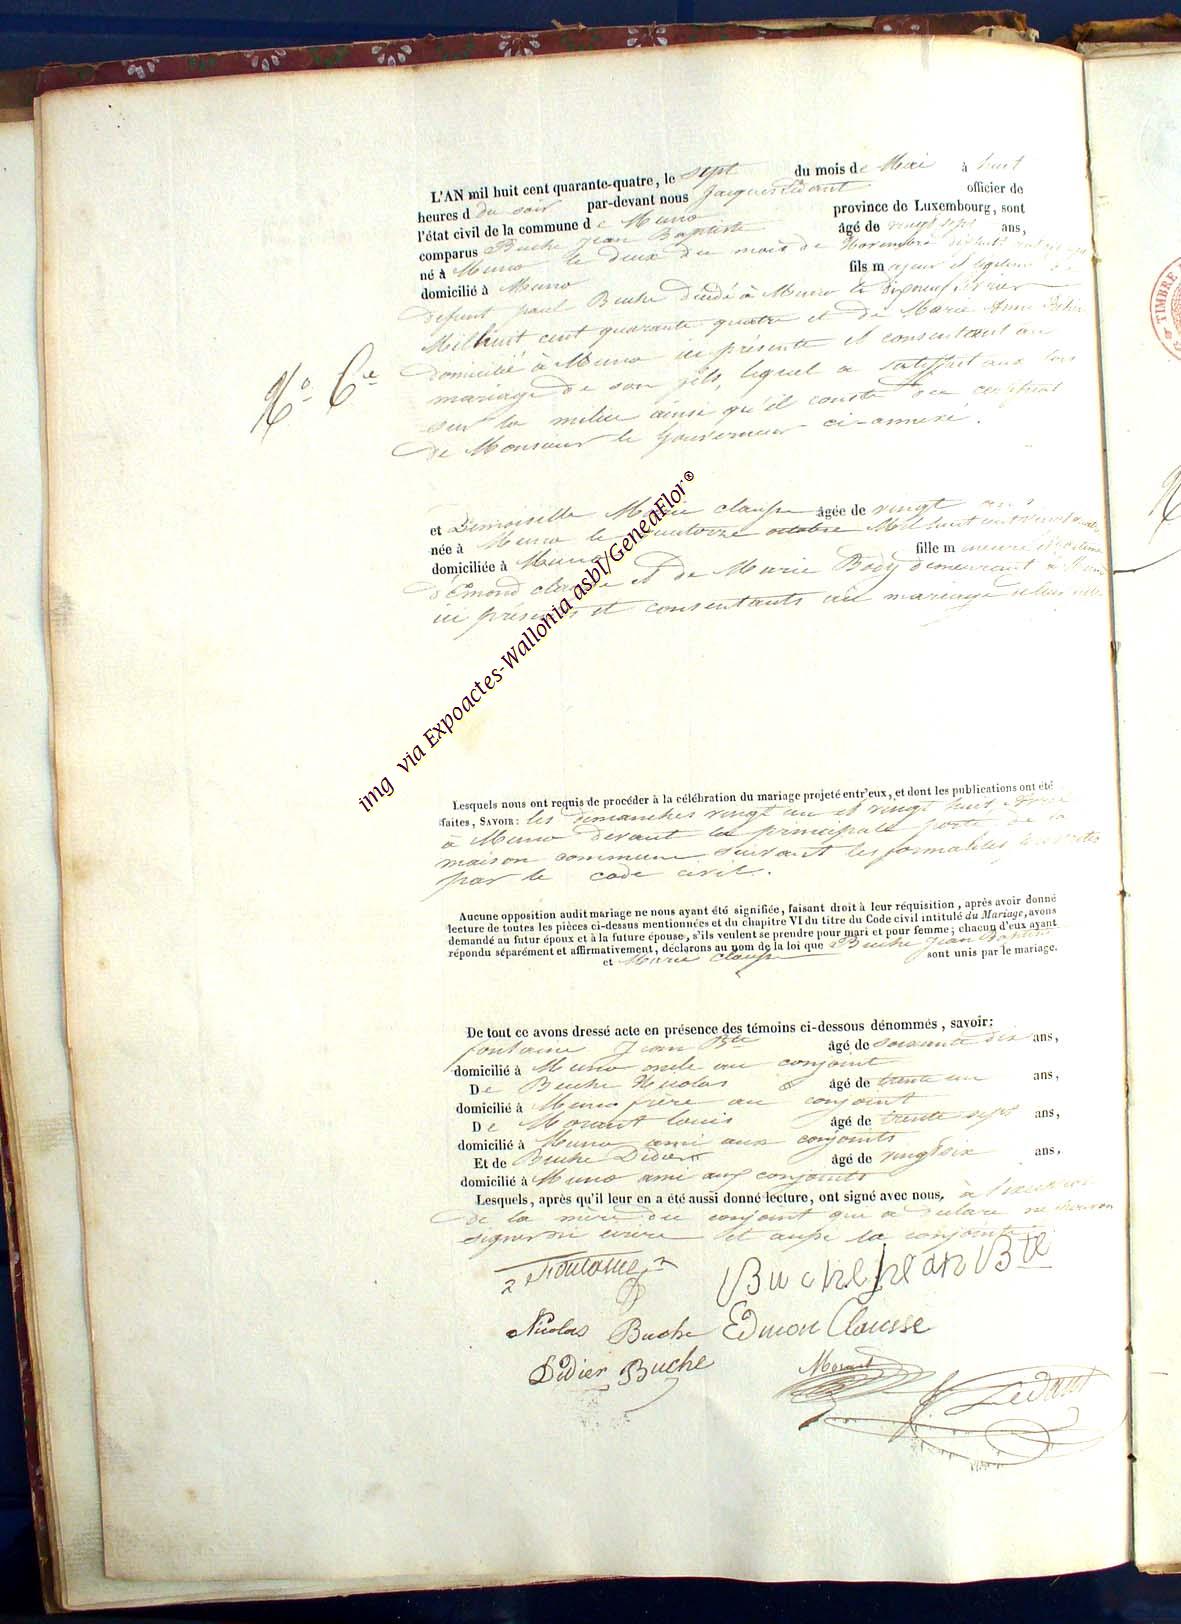 L'AN mil huit cent quarante-quatre, le sept du mois de Mai à huit
heures d du soir par-devant nous Jacques Ledant officier de
l'état civil de la commune de Muno province de Luxembourg, sont
comparus Buche Jean Baptiste âgé de vingt sept ans,
né à Muno le deux du mois de Novembre dix huit
domicilié à Muno fils majeur et légitime de
defunt paul Buche décédé à Muno le dix neuf février
Mil huit cent quarante quatre et de Marie Anne
domicilié à Muno ici présente et consentant au
mariage de son fils, lequel a satisfait aux lois
sur la milice ainsi qu'il conste du certificat
de Monsieur le Gouverneur ci-annexé.
No 6e
et Demoiselle Marie clausse âgée de vingt ans
née à Muno le quatorze octobre Mil huit cent vingt
domiciliée à Muno fille mineure légitime
d'Emond clausse et de Marie Body demeurant à Muno
ici présents et consentants au mariage de leur fille
img via Expoactes-Wallonia asbl/GeneaFlor®
Lesquels nous ont requis de procéder à la célébration du mariage projeté entr'eux, et dont les publications ont été
faites, SAVOIR: les dimanches vingt un et vingt huit Avril
à Muno devant la principale porte de la
maison commune suivant les formalités prescrites
par le code civil.
Aucune opposition audit mariage ne nous ayant été signifiée, faisant droit à leur réquisition, après avoir donné
lecture de toutes les pièces ci-dessus mentionnées et du chapitre VI du titre du Code civil intitulé du Mariage, avons
demandé au futur époux et à la future épouse, s'ils veulent se prendre pour mari et pour femme; chacun d'eux ayant
répondu séparément et affirmativement, déclarons au nom de la loi que Buche Jean Baptiste
et Marie Clausse sont unis par le mariage.
De tout ce avons dressé acte en présence des témoins ci-dessous dénommés, savoir:
fontaine Jean Bte âgé de soixante dix ans,
domicilié à Muno oncle au conjoint
De Buche Nicolas âgé de trente un ans,
domicilié à Muno frère au conjoint
De Morant louis âgé de trente sept ans,
domicilié à Muno ami aux conjoints
Et de Buche Didier âgé de vingt six ans,
domicilié à Muno ami aux conjoints
Lesquels, après qu'il leur en a été aussi donné lecture, ont signé avec nous, à l'exception
de la mère du conjoint qui a declaré ne savoir
signer ni écrire et aussi la conjointe
Fontaine Buche Jean Bte
Nicolas Buche Edmon Clausse
Didier Buche Morant
Ledant
TIMBRE